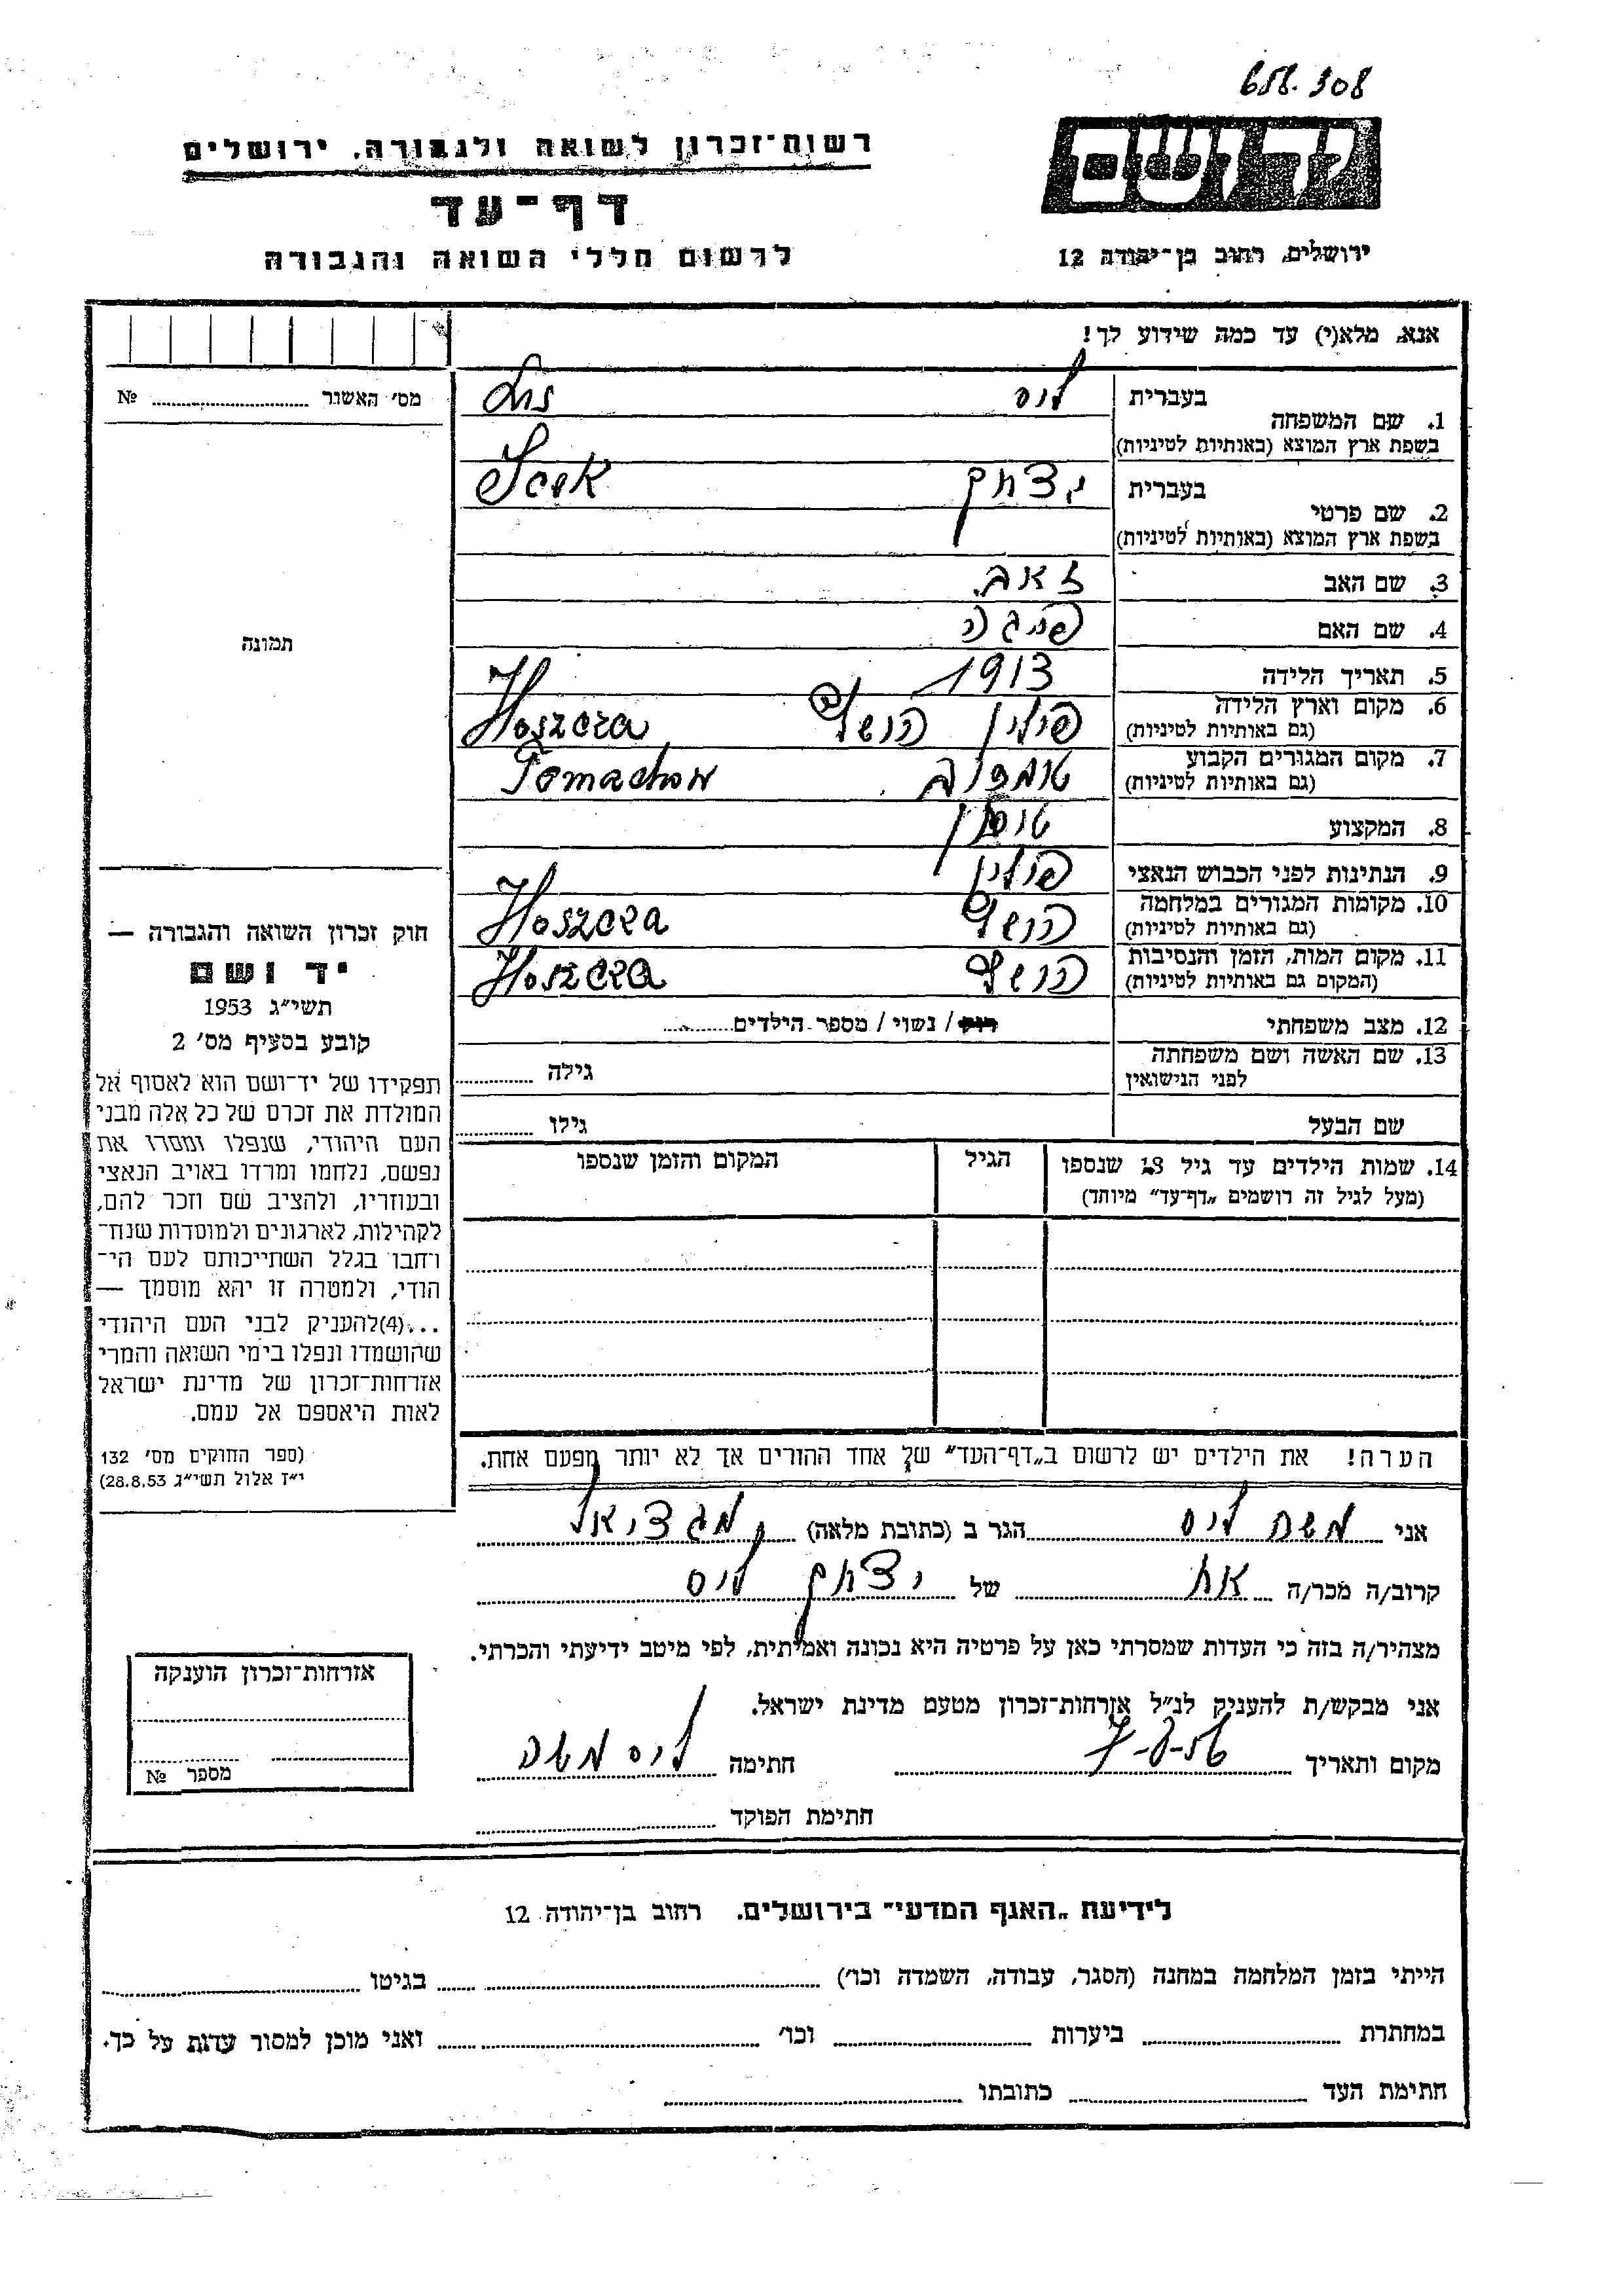 658.308
יד ושם
רשות־זכרון לשואה ולגבורה, ירושלים
דף־עד
לרשום חללי השואה והגבורה
ירושלים, רחוב בן־יהודה 12
אנא, מלא(י) עד כמה שידוע לך!
מס׳ האשור № ..........
תמונה
1. שם המשפחה
בעברית ליס
בשפת ארץ המוצא (באותיות לטיניות)
2. שם פרטי
בעברית יצחק
בשפת ארץ המוצא (באותיות לטיניות)
3. שם האב זאב
4. שם האם פייגה
5. תאריך הלידה 1913
6. מקום וארץ הלידה פולין Hoszcza
(גם באותיות לטיניות)
7. מקום המגורים הקבוע Tomachow
(גם באותיות לטיניות)
8. המקצוע טוחן
9. הנתינות לפני הכבוש הנאצי פולין
10. מקומות המגורים במלחמה הושצה Hoszcza
(גם באותיות לטיניות)
11. מקום המות, הזמן והנסיבות הושצה Hoszcza
(המקום גם באותיות לטיניות)
12. מצב משפחתי רווק / נשוי / מספר הילדים..........
13. שם האשה ושם משפחתה
לפני הנישואין גילה ..........
שם הבעל גילו ..........
14. שמות הילדים עד גיל 18 שנספו הגיל המקום והזמן שנספו
(מעל לגיל זה רושמים „דף־עד״ מיוחד)
הערה! את הילדים יש לרשום ב„דף־העד״ של אחד ההורים אך לא יותר מפעם אחת.
חוק זכרון השואה והגבורה —
יד ושם
תשי״ג 1953
קובע בסעיף מס׳ 2
תפקידו של יד־ושם הוא לאסוף אל
המולדת את זכרם של כל אלה מבני
העם היהודי, שנפלו ומסרו את
נפשם, נלחמו ומרדו באויב הנאצי
ובעוזריו, ולהציב שם וזכר להם,
לקהילות, לארגונים ולמוסדות שנח־
רחבו בגלל השתייכותם לעם הי־
הודי, ולמטרה זו יהא מוסמך —
...(4)להעניק לבני העם היהודי
שהושמדו ונפלו בימי השואה והמרי
אזרחות־זכרון של מדינת ישראל
לאות היאספם אל עמם.
(ספר החוקים מס׳ 132
י״ז אלול תשי״ג 28.8.53)
אני משה ליס הגר ב (כתובת מלאה) מגדיאל
קרוב/ה מכר/ה אח של יצחק ליס
מצהיר/ה בזה כי העדות שמסרתי כאן על פרטיה היא נכונה ואמיתית, לפי מיטב ידיעתי והכרתי.
אני מבקש/ת להעניק לנ״ל אזרחות־זכרון מטעם מדינת ישראל.
מקום ותאריך 7-8-56 חתימה ליס משה
חתימת הפוקד ..........
אזרחות־זכרון הוענקה
מספר №
לידיעת „האגף המדעי״ בירושלים, רחוב בן־יהודה 12
הייתי בזמן המלחמה במחנה (הסגר, עבודה, השמדה וכו׳) .......... בגיטו ..........
במחתרת .......... ביערות .......... וכו׳ .......... ואני מוכן למסור עדות על כך.
חתימת העד .......... כתובתו ..........